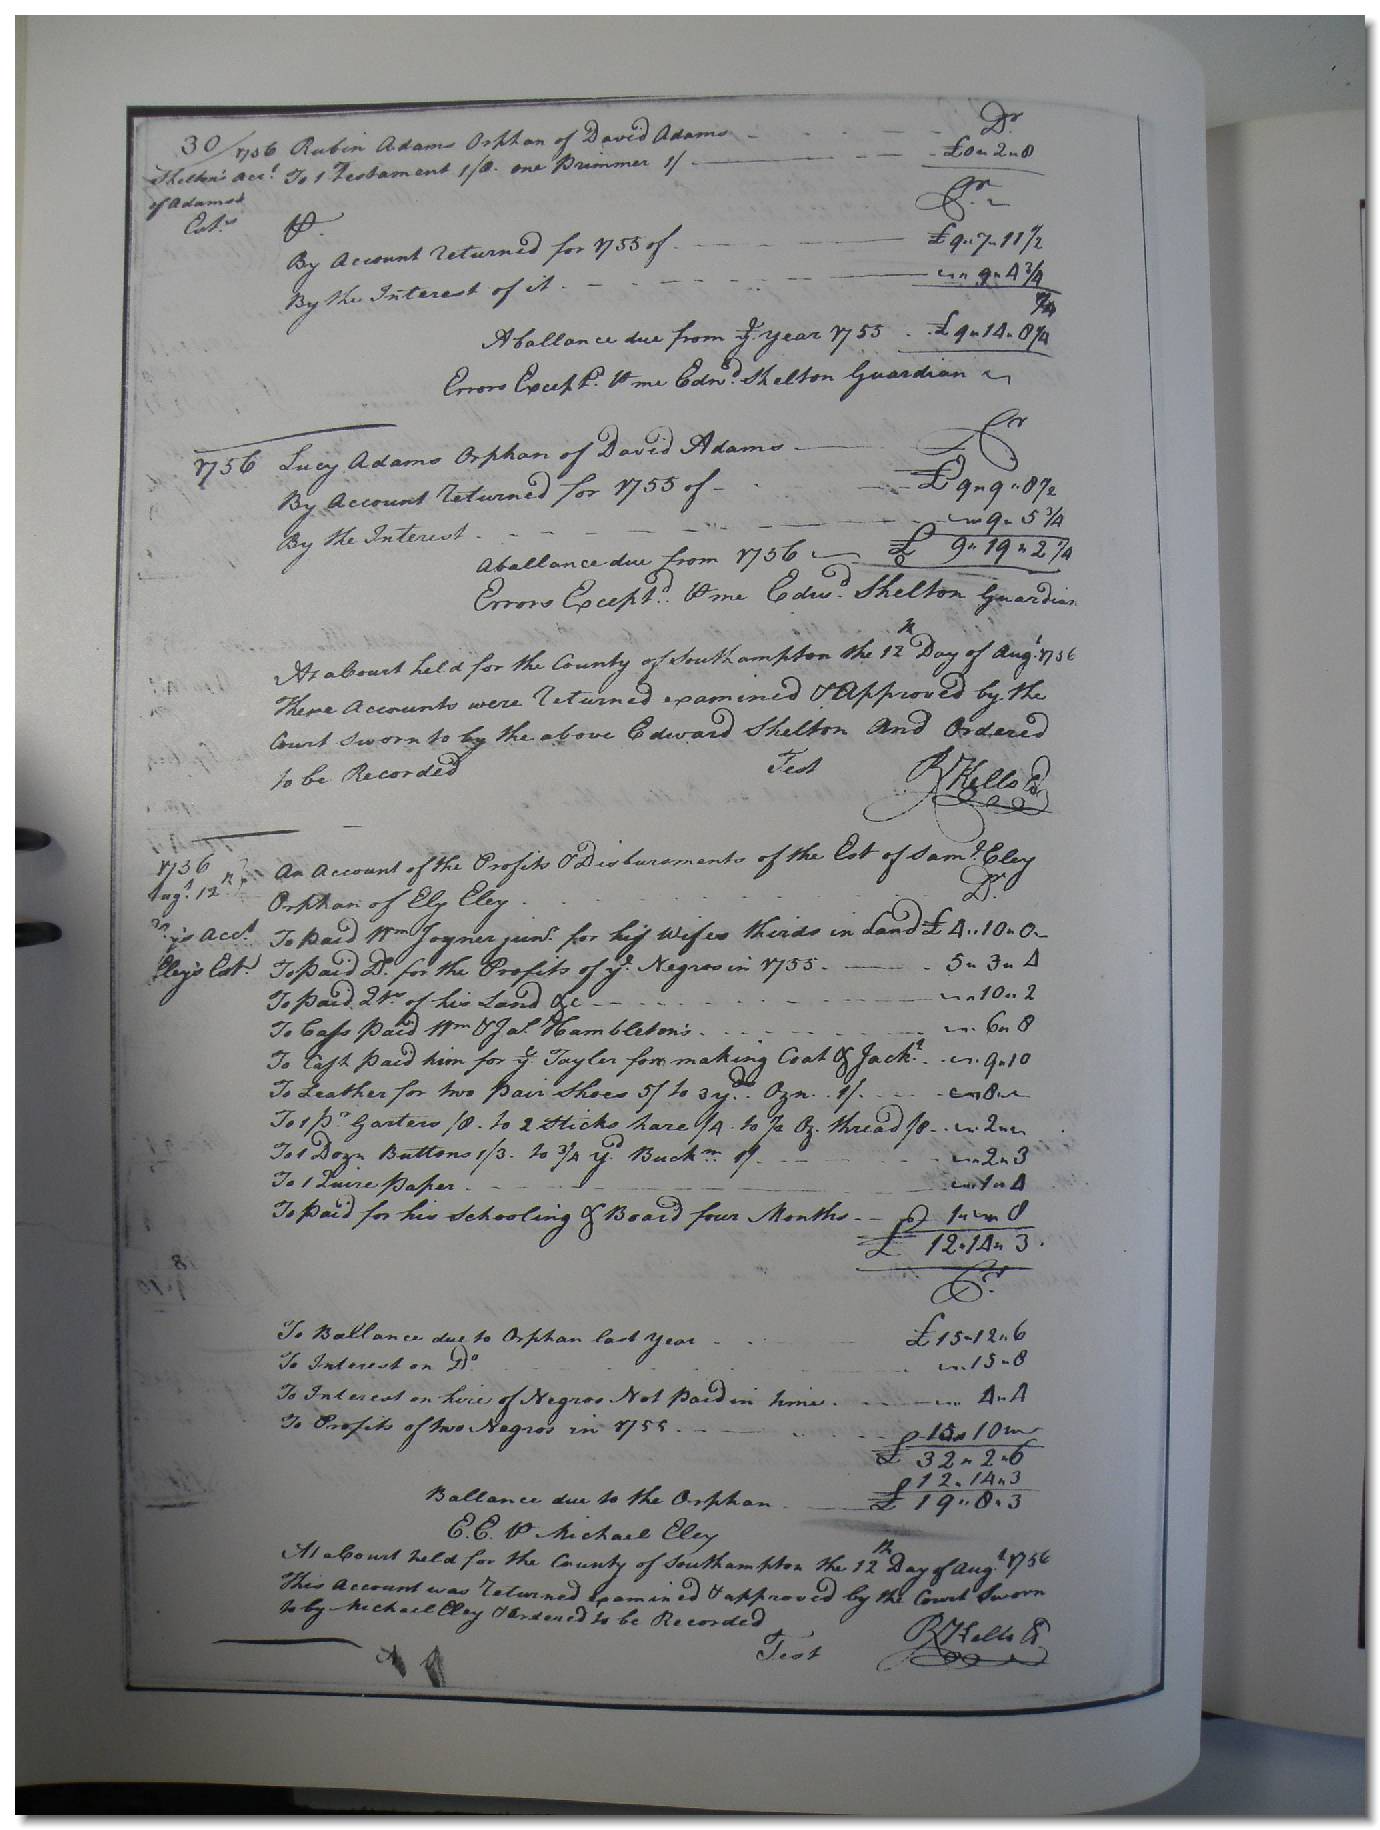 30/1756 Rubin Adams Orphan of David Adams Dr
Shelton's Acct. To 1 Testament 1/8. one Primmer 1/ £0" 2" 8
of Adams's
Est. Cr
By Account returned for 1755 of £9" 7" 11 1/2
By the Interest of it " 9" 4 3/4
A ballance due from ye. year 1755 £9" 14" 8 1/4
Errors Exceptd. ⅌ me Edwd. Shelton Guardian
1756 Lucy Adams Orphan of David Adams Cr
By Account returned for 1755 of £9" 9" 8 1/2
By the Interest " 9" 5 3/4
A ballance due from 1756 £ 9" 19" 2 1/4
Errors Exceptd. ⅌ me Edwd. Shelton Guardian
At a Court held for the County of Southampton the 12th Day of Augt. 1756
These Accounts were returned examined & Approved by the
Court sworn to by the above Edward Shelton And Ordered
to be Recorded Test R Kello Cl
1756 An Account of the Profits & Disbursments of the Est of Saml. Eley
Augt. 12th Orphan of Ely Eley Dr.
Acct. To paid Wm Joyner junr. for his wifes thirds in Land £4" 10" 0
Eley's Est. To paid Do. for the Profits of ye. Negros in 1755. 5" 3" 4
To paid Qts of his Land &c " 10" 2
To Cash paid Wm & Jas. Hambleton's " 6" 8
To Cash paid him for ye Tayler for making Coat & Jackt. " 9" 10
To Leather for two pair shoes 5/ to 3 yds. Ozn. 1/. " 8"
To 1 pr Garters /8. to 2 sticks hare /4 to 1/2 Oz. thread /8 " 2"
To 1 Dozn Buttons 1/3. to 3/4 yd. Buckm 1/ " 2" 3
To 1 Quire paper " 1" 4
To paid for his schooling & Board four Months 1" " 8
£ 12" 14" 3
Cr.
To Ballance due to Orphan last year £15" 12" 6
To Interest on Do " 15" 8
To Interest on hire of Negros Not paid in time " 4" 4
To Profits of two Negros in 1755 15" 10"
£ 32" 2" 6
12" 14" 3
Ballance due to the Orphan £ 19" 8" 3
E.E. ⅌ Michael Eley
At a Court held for the County of Southampton the 12th Day of Augt. 1756
This Account was returned examined & approved by the Court Sworn
to by Michael Eley & Ordered to be Recorded
Test R Kello Cl